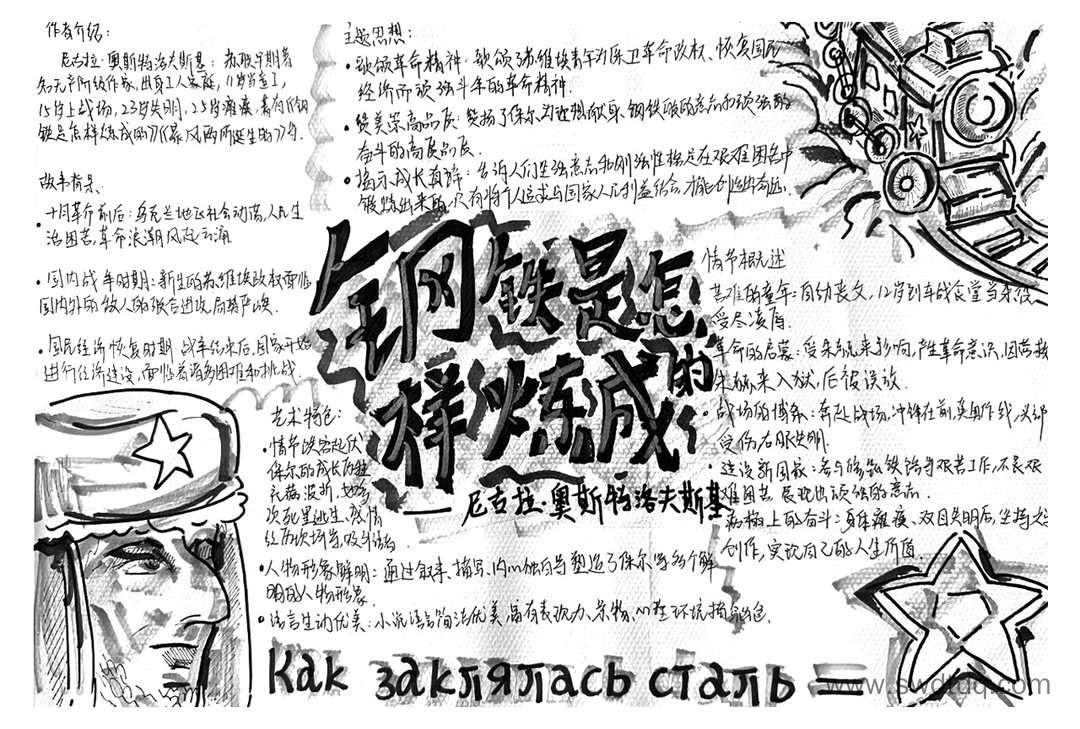 作者介绍:
尼古拉·奥斯特洛夫斯基: 苏联早期著
名无产阶级作家,出身工人家庭,11岁当童工,
15岁上战场, 23岁失明, 25岁瘫痪,著有《钢
铁是怎样炼成的》《暴风雨所诞生的》等.
故事背景.
十月革命前后: 乌克兰地区社会动荡,人民生
活困苦,革命浪潮风起云涌
国内战争时期: 新生的苏维埃政权面临
国内外的敌人的联合进攻,局势严峻.
国民经济恢复时期: 战争结束后,国家开始
进行经济建设,面临着诸多困难和挑战.
主题思想:
歌颂革命精神: 歌颂苏维埃青年为保卫革命政权、恢复国民
经济而顽强斗争的革命精神.
赞美崇高品质: 赞扬了保尔为理想献身、钢铁般的意志和顽强的
奋斗的高贵品质.
揭示成长真谛: 告诉人们坚强意志和刚强性格是在艰难困苦中
锻炼出来的,只有将个人追求与国家人民利益结合,才能创造出奇迹.
钢铁是怎
样炼成的
——尼古拉·奥斯特洛夫斯基
情节概述
苦难的童年: 自幼丧父, 12岁到车站食堂当杂役,
受尽凌辱.
革命的启蒙: 受朱赫来影响,产生革命意识,因营救
朱赫来入狱,后被误放.
战场的博杀: 奔赴战场,冲锋在前,英勇作战,头部
受伤,右眼失明.
建设新国家: 参与修筑铁路等艰苦工作,不畏艰
难困苦 展现出顽强的意志.
病榻上的奋斗: 身体瘫痪、双目失明后,坚持文学
创作,实现自己的人生价值
艺术特色:
情节跌宕起伏
保尔的成长历程
充满波折,如多
次死里逃生、感情
经历坎坷等,吸引读者.
人物形象鲜明: 通过叙事、描写、内心独白等塑造了保尔等多个鲜
明的人物形象.
语言生动优美: 小说语言简洁优美,富有表现力,景物、心理环境描写出色.
Как заклялась сталь =
www.swdtdq.com